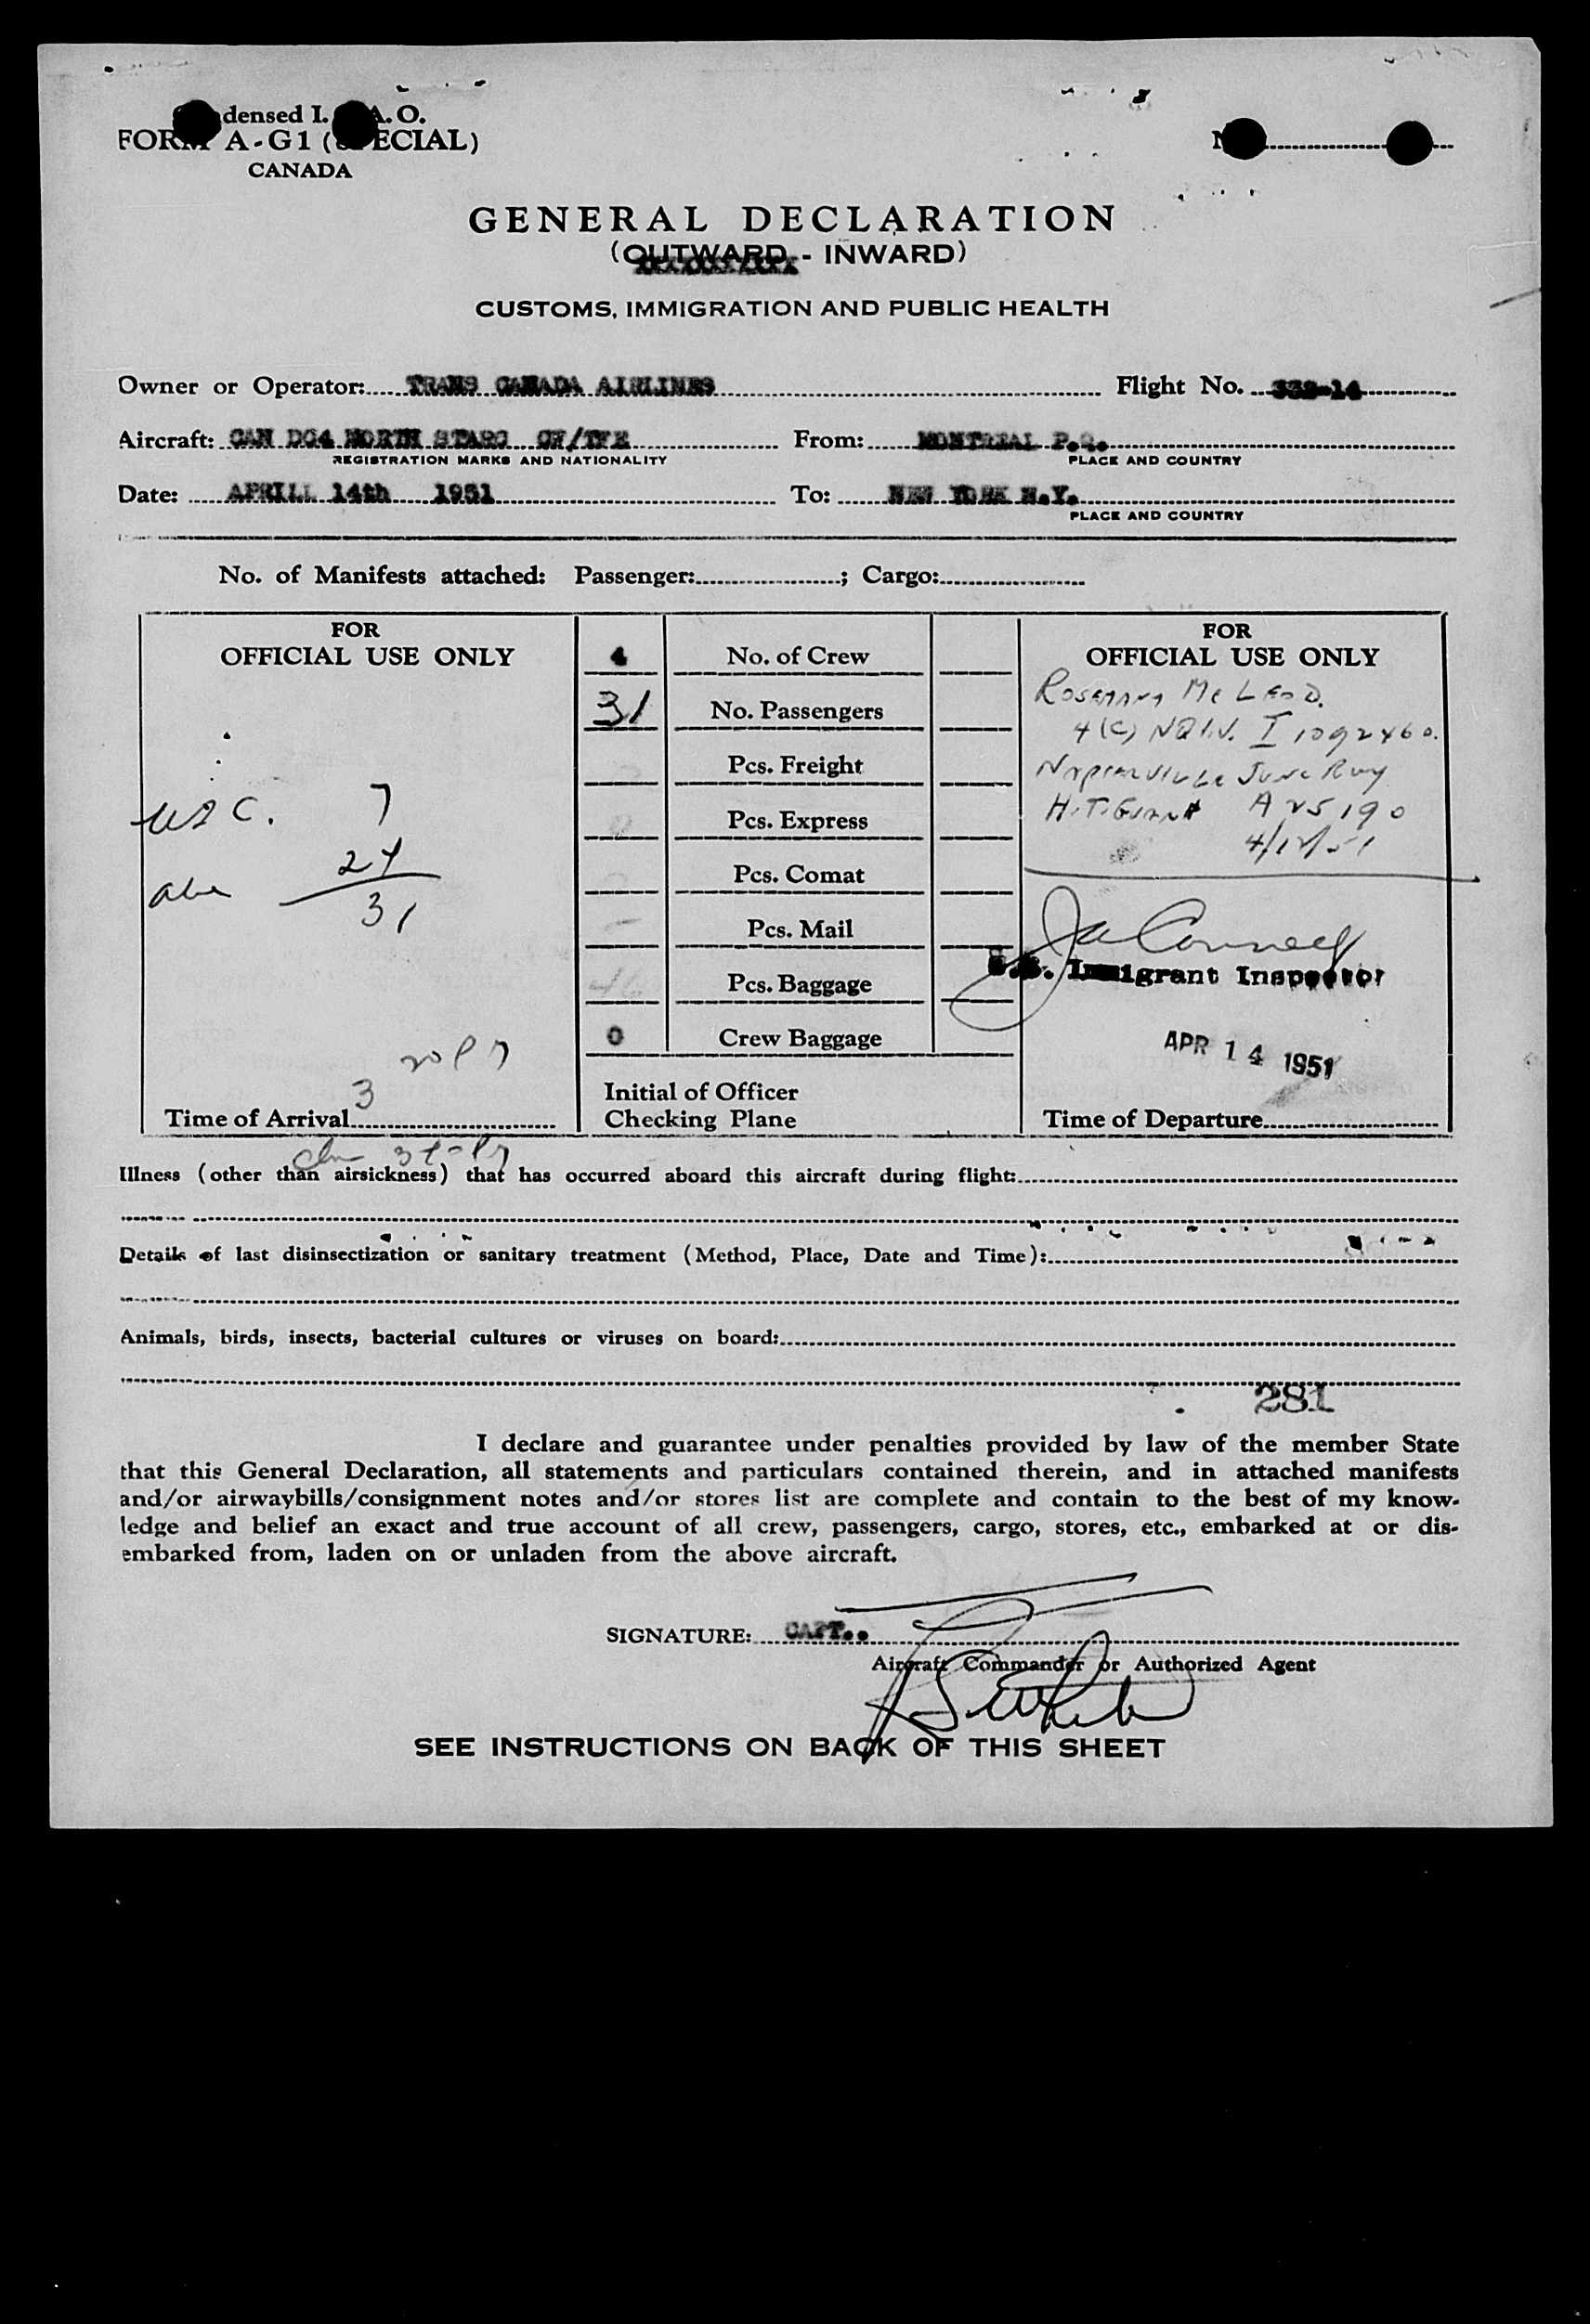 densed I. A.O.
FORM A-G1 (SPECIAL)
CANADA
GENERAL DECLARATION
(OUTWARD - INWARD)
CUSTOMS, IMMIGRATION AND PUBLIC HEALTH
Owner or Operator: TRANS CANADA AIRLINES Flight No. 332-14
Aircraft: CAN DC4 NORTH STAR CF/TFE From: MONTREAL P.Q.
REGISTRATION MARKS AND NATIONALITY PLACE AND COUNTRY
Date: APRILL 14th 1951 To: NEW YORK N.Y.
PLACE AND COUNTRY
No. of Manifests attached: Passenger: ; Cargo:
FOR
OFFICIAL USE ONLY
USC. 7
24
31
3 20 P
Time of Arrival
4 No. of Crew
31 No. Passengers
Pcs. Freight
Pcs. Express
Pcs. Comat
Pcs. Mail
Pcs. Baggage
0 Crew Baggage
Initial of Officer
Checking Plane
FOR
OFFICIAL USE ONLY
Rosemary McLeod.
4(c) NQIV. I 1092460.
Napierville Junc Rwy
H.T. A25190
Immigrant Inspector
APR 14 1951
Time of Departure
Illness (other than airsickness) that has occurred aboard this aircraft during flight:
Details of last disinsectization or sanitary treatment (Method, Place, Date and Time):
Animals, birds, insects, bacterial cultures or viruses on board:
281
I declare and guarantee under penalties provided by law of the member State
that this General Declaration, all statements and particulars contained therein, and in attached manifests
and/or airwaybills/consignment notes and/or stores list are complete and contain to the best of my know-
ledge and belief an exact and true account of all crew, passengers, cargo, stores, etc., embarked at or dis-
embarked from, laden on or unladen from the above aircraft.
SIGNATURE: CAPT..
Aircraft Commander or Authorized Agent
SEE INSTRUCTIONS ON BACK OF THIS SHEET